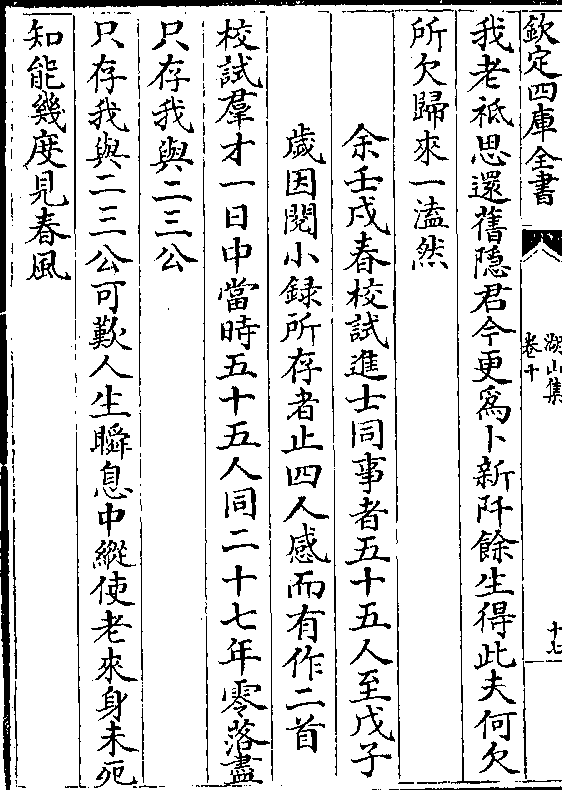 欽定四庫全書
湖山集
卷十
十七
我老祗思還舊隱君今更為卜新阡餘生得此夫何欠
所欠歸來一溘然
余壬戌春校試進士同事者五十五人至戊子
歲因閱小録所存者止四人感而有作二首
校試羣才一日中當時五十五人同二十七年零落盡
只存我與二三公
只存我與二三公可歎人生瞬息中縱使老來身未死
知能幾度見春風